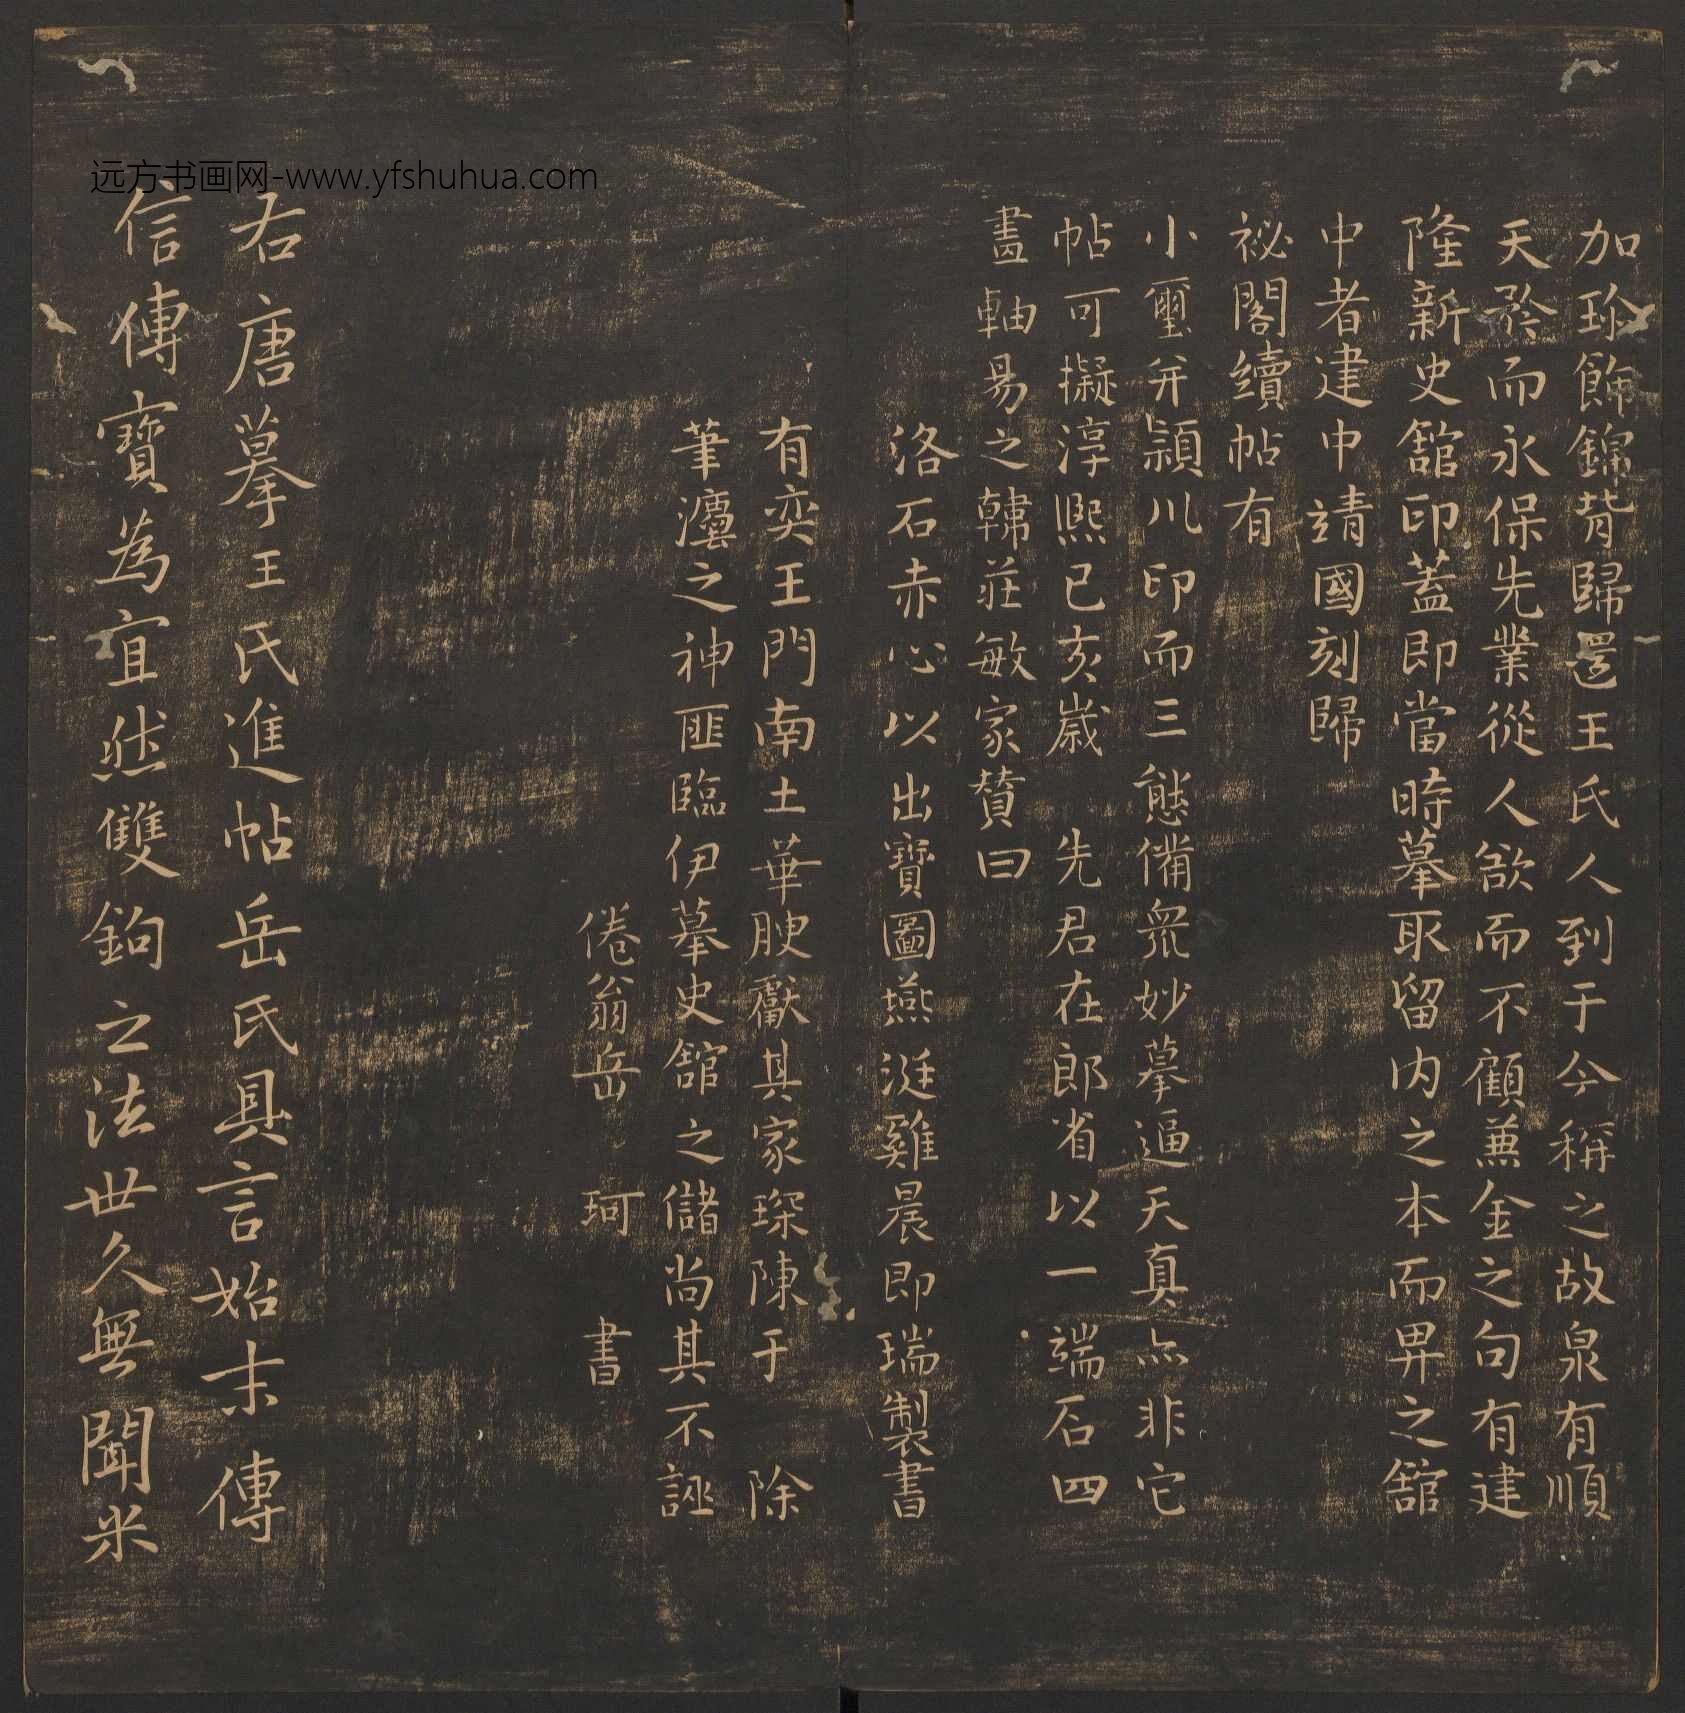 远方书画网-www.yfshuhua.com
加珍飾錦背歸還王氏人到于今稱之故泉有順
天矜而永保先業從人欲而不顧兼金之句有建
隆新史館印蓋即當時摹取留内之本而畀之館
中者建中靖國刻歸
祕閣續帖有
小璽并潁川印而三態備衆妙摹逼天真亦非它
帖可擬淳熙己亥歲 先君在郎省以一端石四
畫軸易之韓莊敏家贊曰
洛石赤心以出寶圖燕涎雞晨即瑞製書
有奕王門南土華腴獻其家琛陳于 除
筆瀍之神匪臨伊摹史館之儲尚其不誣
倦翁岳 珂 書
右唐摹王氏進帖岳氏具言始末傳
信傳寶為宜然雙鉤之法世久無聞米